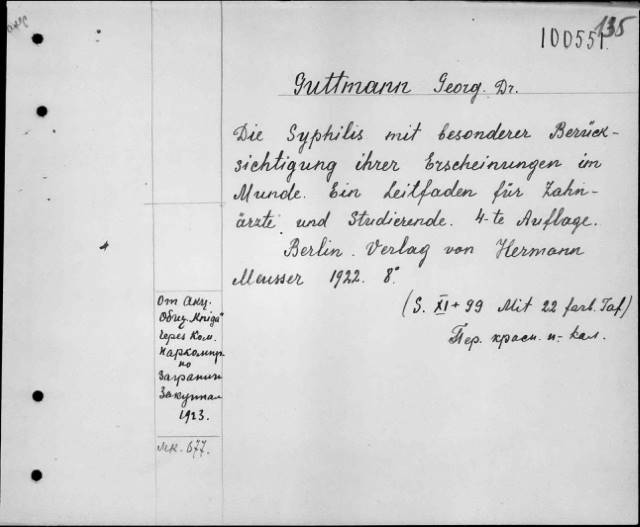 100551.
135
Guttmann Georg. Dr.
Die Syphilis mit besonderer Berück-
sichtigung ihrer Erscheinungen im
Munde. Ein Leitfaden für Zahn-
ärzte und Studierende. 4-te Auflage.
Berlin. Verlag von Hermann
Meusser 1922. 8°
(S. XI + 99 Mit 22 farb. Taf)
Пер. красн. н- кал.
От Акц.
Общ. "Книга"
через Ком.
Наркомпр.
по
Загранич
Закупкам
1923.
МК. 677.